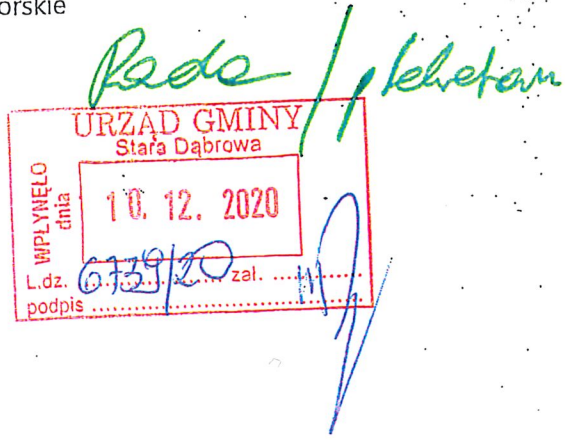 orskie
Rada /
URZĄD GMINY
Stara Dąbrowa
WPŁYNĘŁO
dnia
10. 12. 2020
L.dz. 6739/20 zał. ..................
podpis ..................................................